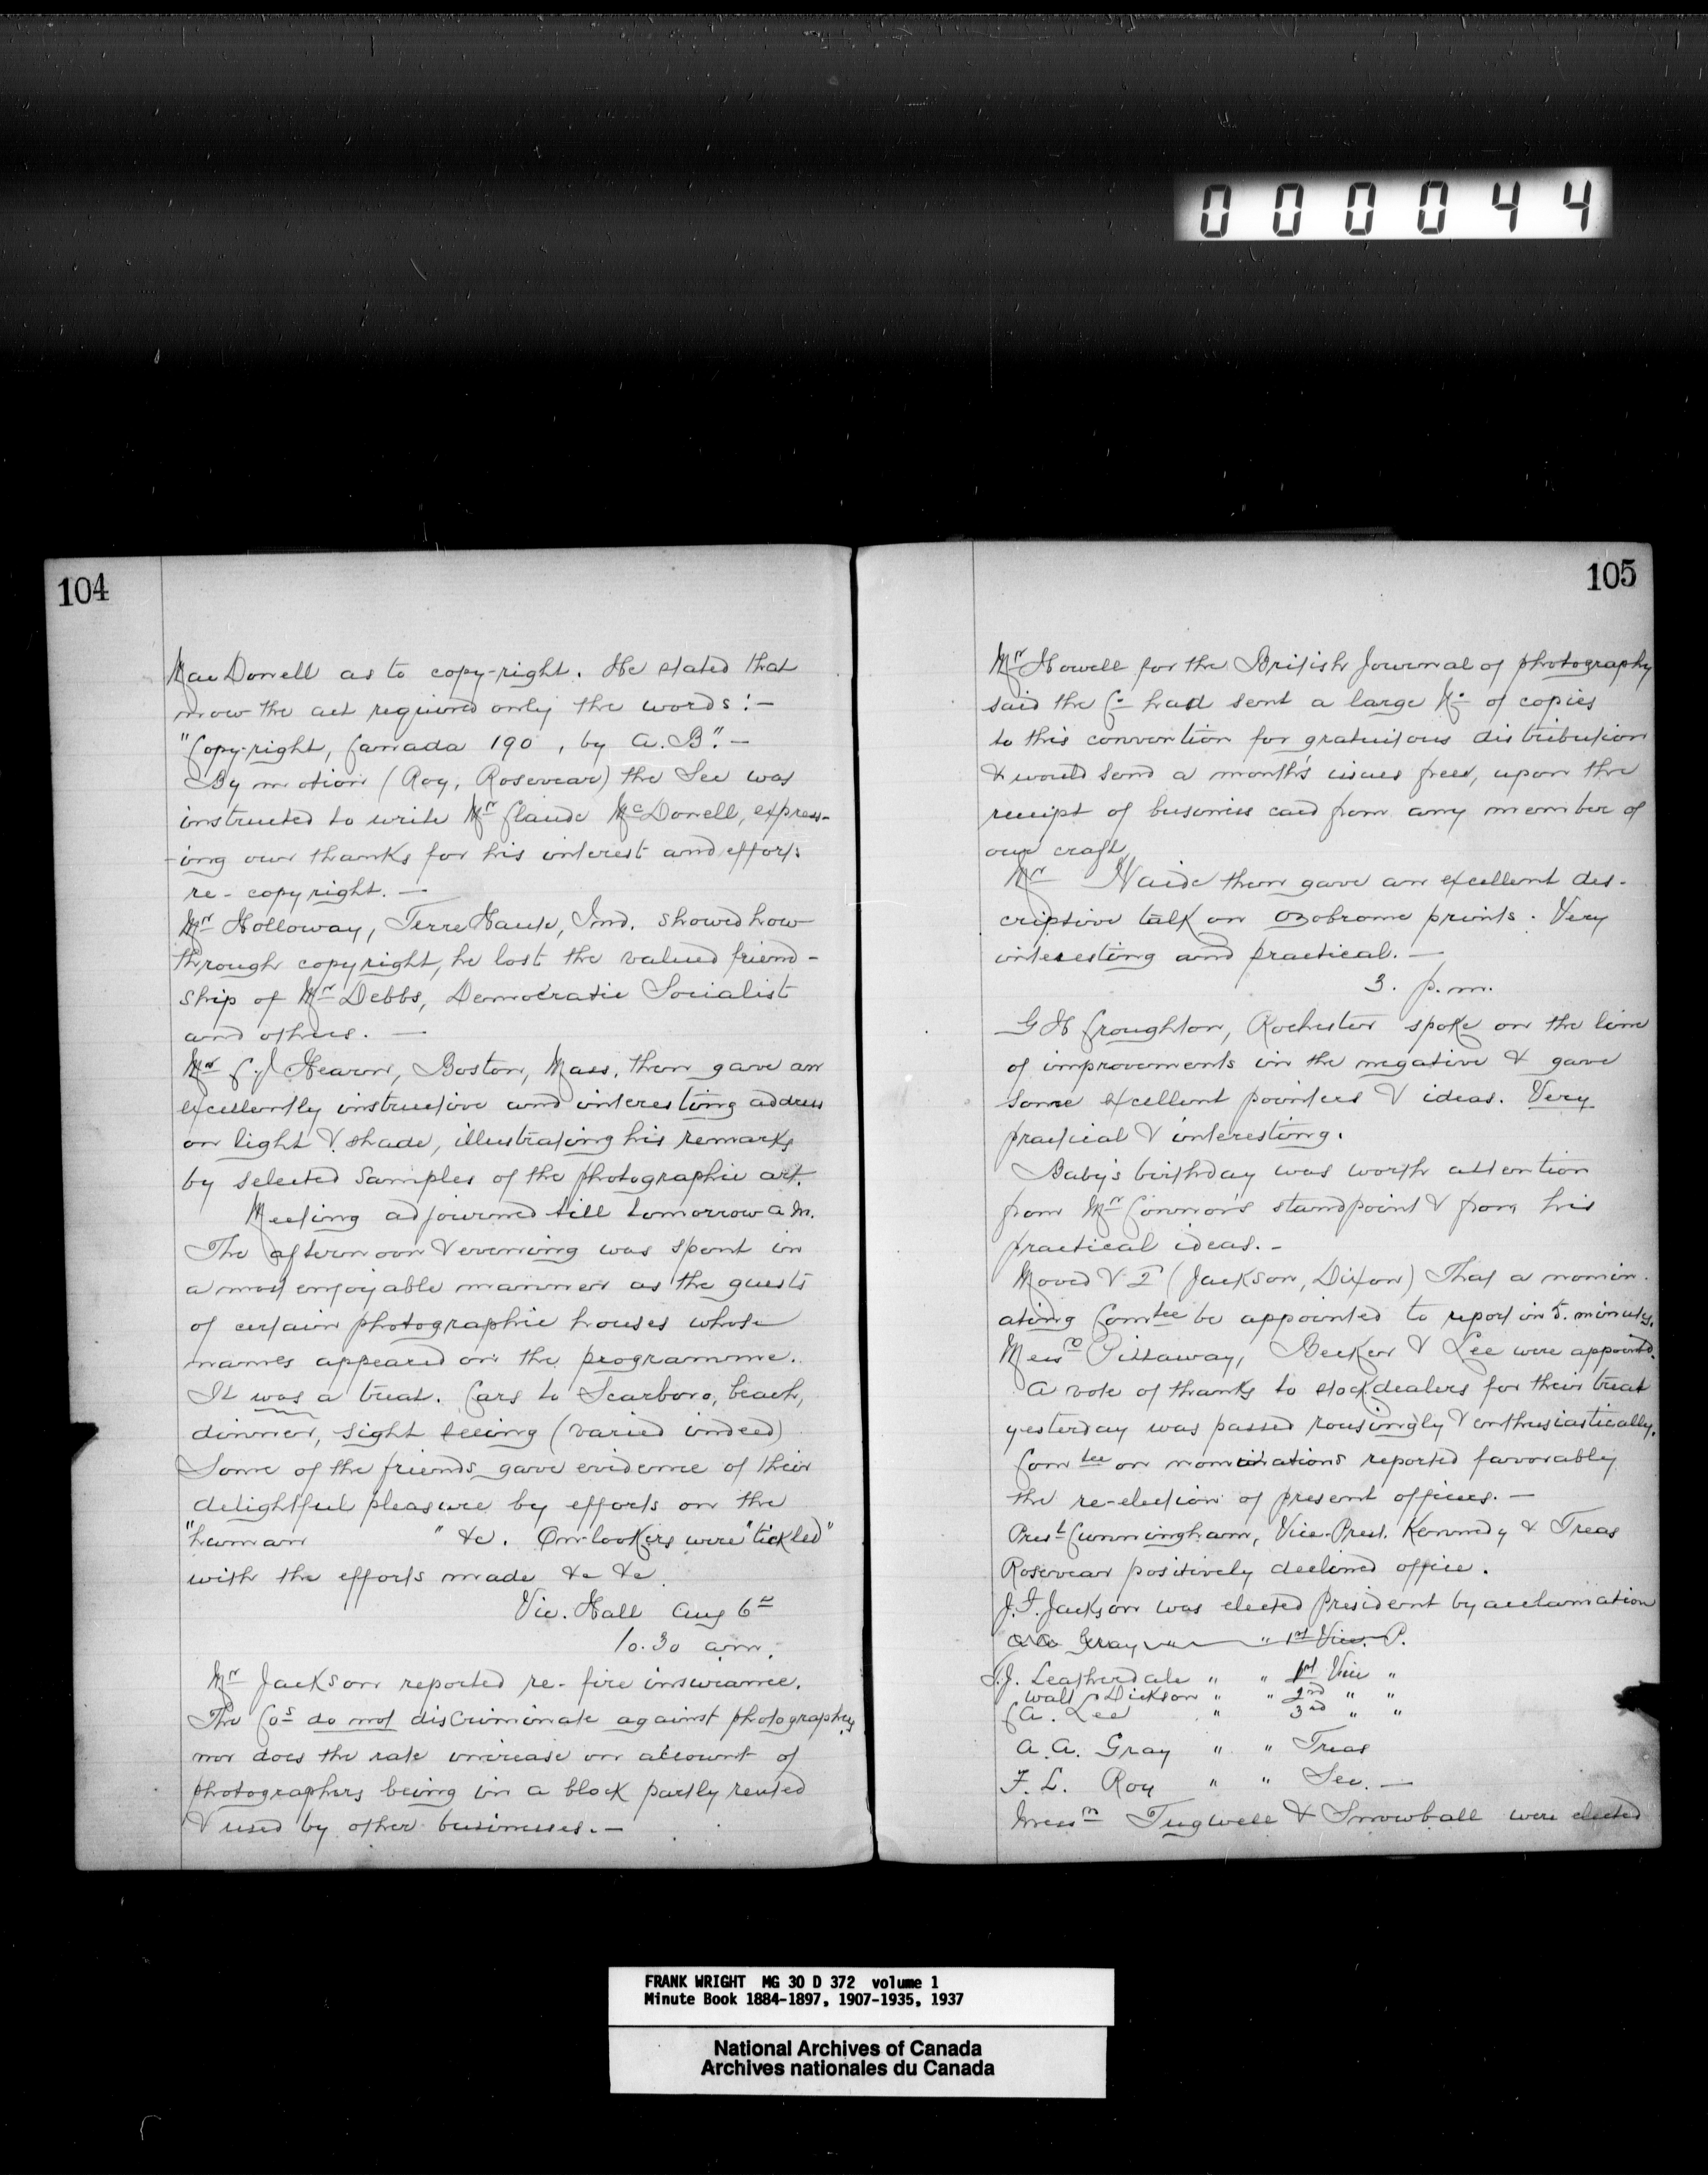 000044
104
MacDonell as to copy-right. He stated that
now the act required only the words:—
"Copy-right, Canada 190 , by A.B." —
By motion (Roy, Rosevear) the Sec was
instructed to write Mr Claude McDonell, express-
ing our thanks for his interest and efforts
re- copyright. —
Mr Holloway, Terre Haute, Ind. showed how
through copyright, he lost the valued friend-
ship of Mr Debbs, Democratic Socialist
and others. —
Mr C.J Hearn, Boston, Mass, then gave an
excellently instructive and interesting address
on light & shade, illustrating his remarks
by selected samples of the photographic art.
Meeting adjourned till tomorrow a.m.
The afternoon & evening was spent in
a most enjoyable manner as the guests
of certain photographic houses whose
names appeared on the programme.
It was a treat. Cars to Scarboro, beach,
dinner, sight seeing (varied indeed)
Some of the friends gave evidence of their
delightful pleasure by efforts on the
"human " &c. On-lookers were "tickled"
with the efforts made &c &c
Vic. Hall Aug 6th
10.30 am.
Mr Jackson reported re- fire insurance.
The Cos do not discriminate against photographers,
nor does the rate increase on account of
photographers being in a block partly rented
& used by other businesses. —
105
Mr Howell for the British Journal of photography
said the Co had sent a large No of copies
to this convention for gratuitous distribution
& would send a month's issues free, upon the
receipt of business card from any member of
our craft,
Mr Haide then gave an excellent des-
criptive talk on ozobrome prints. Very
interesting and practical. —
3. p.m.
G H Croughton, Rochester spoke on the line
of improvements in the negative & gave
some excellent pointers & ideas. Very
practical & interesting.
Baby's birthday was worth attention
from Mr Connor's standpoint & from his
practical ideas. -
Moved & 2d (Jackson, Dixon) That a nomin-
ating Comtee be appointed to report in 5. minutes.
Messrs Pittaway, Becker & Lee were appointd.
A vote of thanks to stockdealers for their treat
yesterday was passed rousingly & enthusiastically.
Comtee on nominations reported favorably
the re-election of present officers. —
Prest Cunningham, Vice-Prest. Kennedy & Treas
Rosevear positively declined office.
J.F. Jackson was elected President by acclamation
A.A. Gray " " 1st Vice. P.
F.J. Leatherdale " " 1st Vice "
Walt Dickson " " 2nd " "
C A. Lee " 3rd " "
A.A. Gray " " Treas
F. L. Roy " " Sec. —
Messrs Tugwell & Snowball were elected
FRANK WRIGHT MG 30 D 372 volume 1
Minute Book 1884-1897, 1907-1935, 1937
National Archives of Canada
Archives nationales du Canada